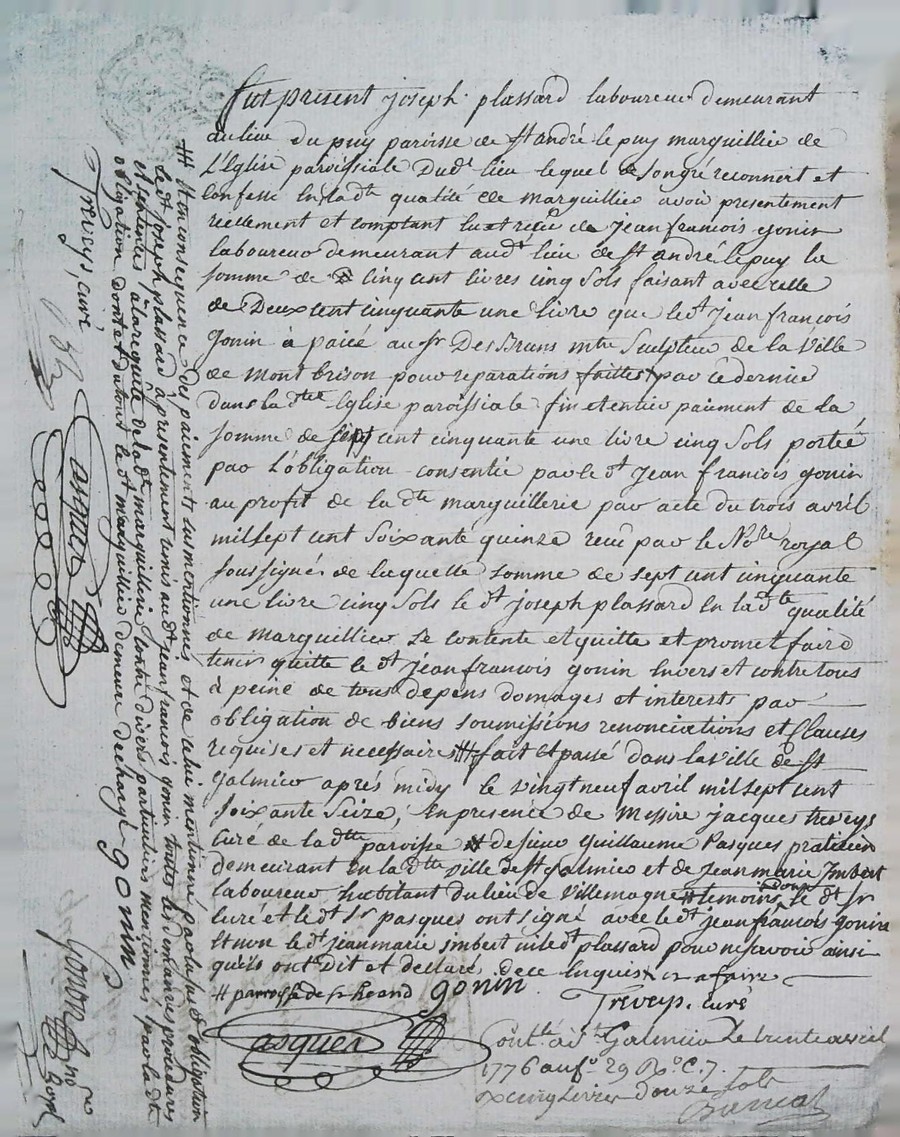 fut present joseph plassard laboureur demeurant
au lieu du puy paroisse de St andré le puy marguillier de
L'Eglise paroissiale Dudt lieu lequel de son gré reconnert et
confesse En la dte qualité de marguillier avoir presentement
reellement et comptant lu et recu de jean francois gonin
laboureur demeurant audt lieu de St andré le puy la
somme de cinq cent livres cinq sols faisant avec celle
de Deux cent cinquante une livre que le dt jean francois
gonin à paiée au sr Des Bruns mtre Sculpteur de la Ville
de Montbrison pour reparations faittes par ce dernier
Dans la dte Eglise paroissiale fin et entier paiement de la
somme de sept cent cinquante une livre cinq sols portée
par L'obligation consentie par le dt jean francois gonin
au profit de la dte marguillerie par acte du trois avril
mil sept cent soixante quinze recu par le Nore royal
soussigné de laquelle somme de sept cent cinquante
une livre cinq sols le dt joseph plassard En la dte qualité
de marguillier se contente et quitte et promet faire
tenir quitte le dt jean francois gonin Envers et contre tous
à peine de tous depens domages et interests par
obligation de biens soumissions renonciations et Clauses
requises et necessaires # fait et passé dans la ville de St
galmier aprés midy le vingt neuf avril mil sept cent
soixante seize, En presence de Messire jacques treveys
curé de la dte paroisse de sieur guillaume Pasques praticien
demeurant En la dte ville de St galmier et de jean marie Imbert
laboureur habitant du lieu de Villemagne # temoins dont le dt sr
curé et le dt sr pasques ont signé avec le dt jean francois gonin
Et non le dt jean marie imbert ni le dt plassard pour ne scavoir ainsi
qu'ils ont Dit et declaré de ce Enquis
# parroisse de gonin
Treveys. curé
pasques
Contlé à St Galmier Le trente avril
1776 au fo. 29 Ro. C. 7.
cinq Livres douze sols
# et en consequence des paiements susmentionnés et de celui mentionné par la susd obligation
le dt joseph plassard à presentement remis au dt jean francois gonin toutes les demandes procedures
et sentences à la requete de la dte marguillerie contre divers particuliers mentionnés par la dt
obligation dont et du tout le dt marguillier demeure dechargé gonin
Treveys, curé
pasques
Gonon
nore Royal